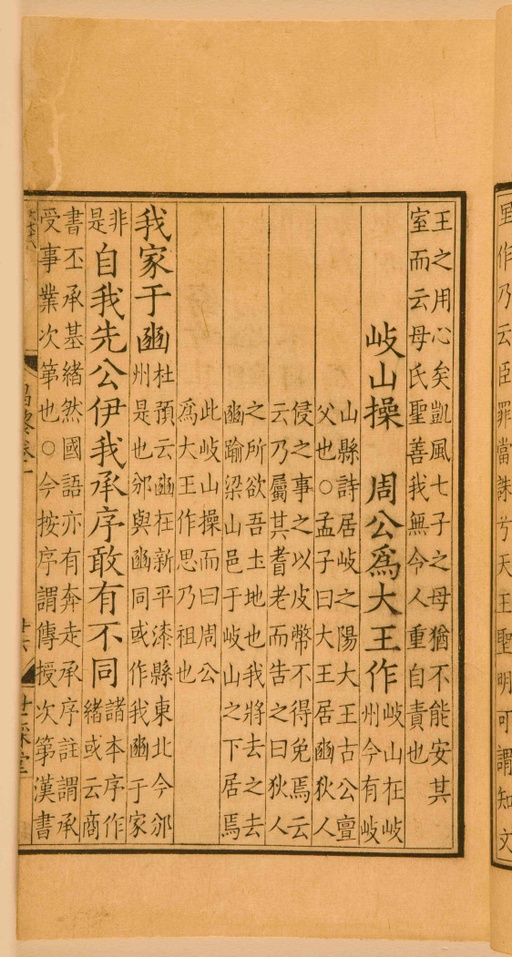 里作乃云臣罪當誅兮天王聖明可謂知文
王之用心矣凱風七子之母猶不能安其
室而云母氏聖善我無令人重自責也
岐山操　周公爲大王作
岐山在岐
州今有岐
山縣詩居岐之陽大王古公亶
父也○孟子曰大王居豳狄人
侵之事之以皮幣不得免焉云
云乃屬其耆老而告之曰狄人
之所欲吾土地也我將去之去
豳踰梁山邑于岐山之下居焉
此岐山操而曰周公
爲大王作思乃祖也
我家于豳
杜預云豳在新平漆縣東北今邠
州是也邠與豳同或作我豳于家
非
是
自我先公伊我承序敢有不同
諸本序作
緒或云商
書丕承基緒然國語亦有奔走承序註謂承
受事業次第也○今按序謂傳授次第漢書
昌黎卷一
廿六
世綵堂